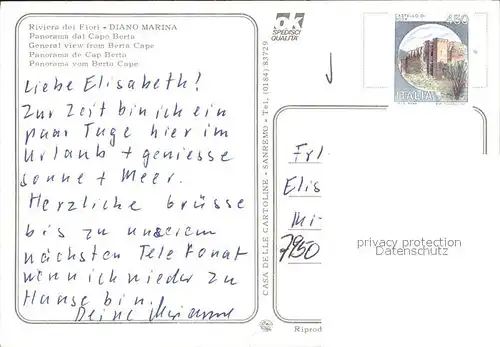 Riviera dei Fiori - DIANO MARINA
Panorama dal Capo Berta
General view from Berta Cape
Panorama de Cap Berta
Panorama vom Berta Cape
Liebe Elisabeth!
Zur Zeit bin ich ein
paar Tage hier im
Urlaub + geniesse
Sonne + Meer.
Herzliche Grüsse
bis zu unserem
nächsten Telefonat
wenn ich wieder zu
Hause bin.
Deine Marianne
CASA DELLE CARTOLINE - SANREMO - Tel. (0184) 83729
ok
SPEDISCI
QUALITÀ
CASTELLO DI
450
ITALIA
Frl.
Elis
7950
privacy protection
Datenschutz
Riprod